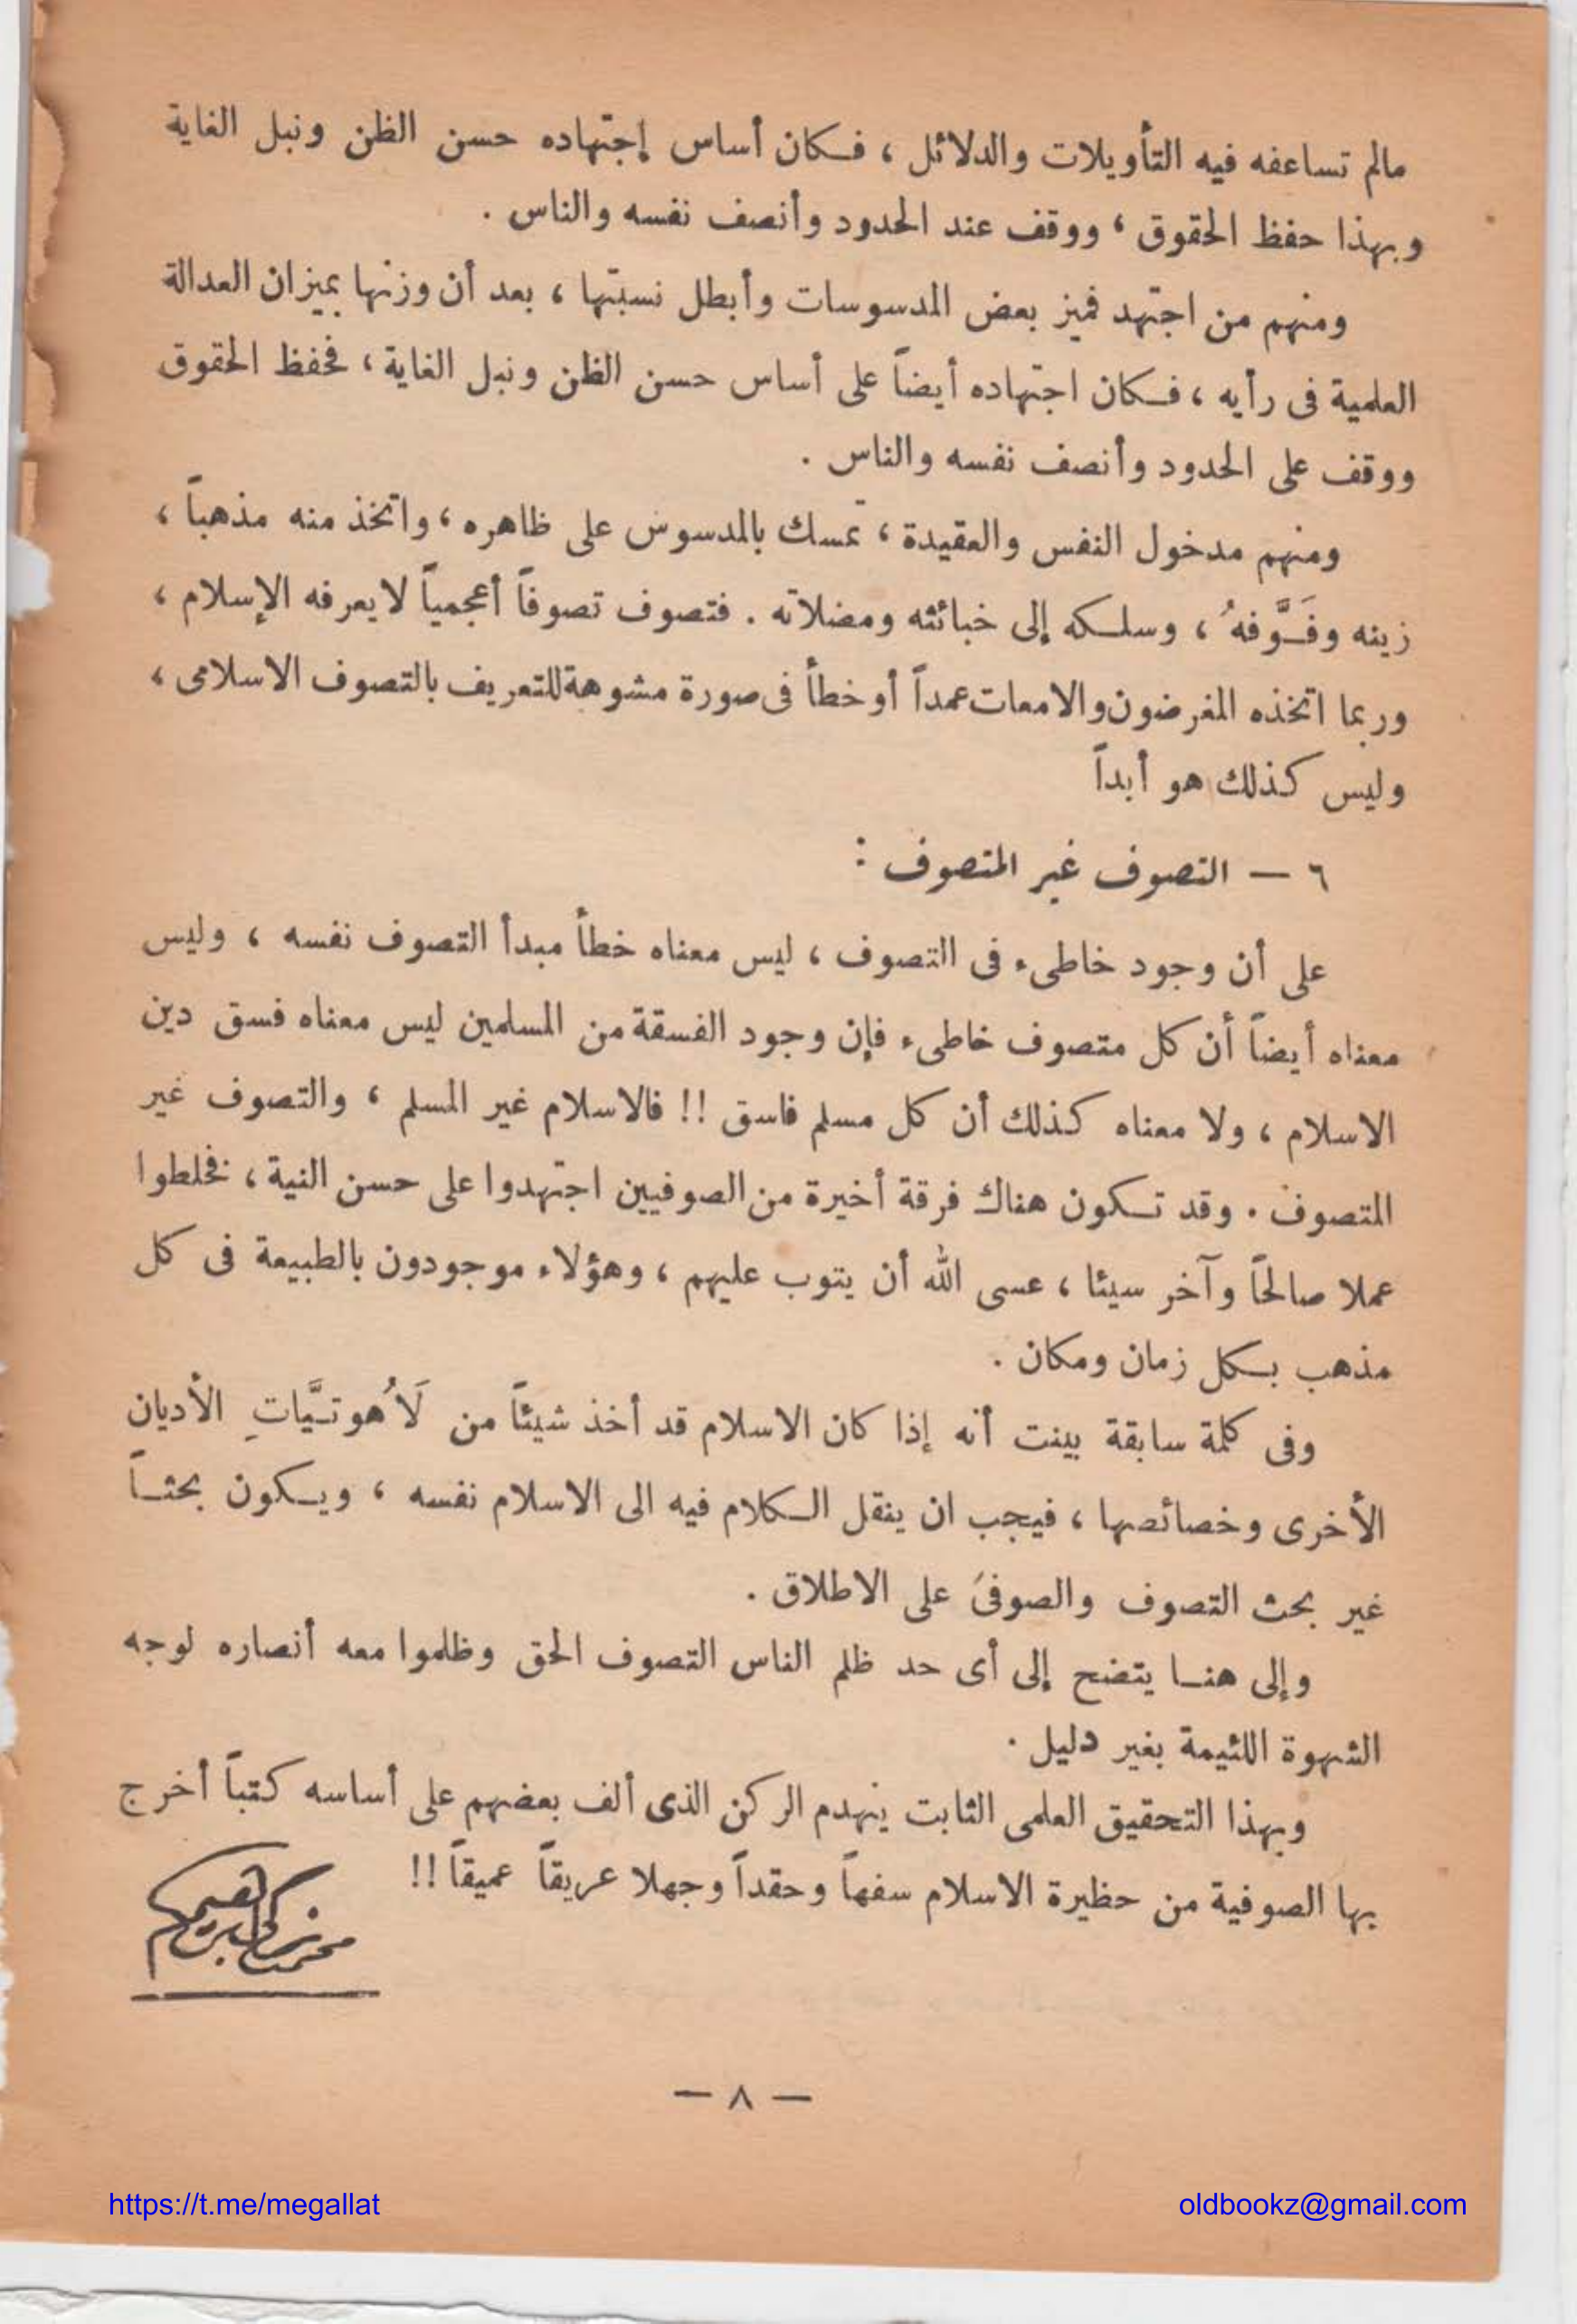 مالم تساعفه فيه التأويلات والدلائل ، فكان أساس إجتهاده حسن الظن ونبل الغاية
وبهذا حفظ الحقوق ، ووقف عند الحدود وأنصف نفسه والناس .
ومنهم من اجتهد فميز بعض المدسوسات وأبطل نسبتها ، بعد أن وزنها بميزان العدالة
العلمية فى رأيه ، فكان اجتهاده أيضاً على أساس حسن الظن ونبل الغاية ، فحفظ الحقوق
ووقف على الحدود وأنصف نفسه والناس .
ومنهم مدخول النفس والعقيدة ، تمسك بالمدسوس على ظاهره ، واتخذ منه مذهباً ،
زينه وفَوَّفهُ ، وسلكه إلى خبائثه ومضلاته . فتصوف تصوفاً أعجمياً لا يعرفه الإسلام ،
وربما اتخذه المغرضون والامعات عمداً أو خطأ فى صورة مشوهة للتعريف بالتصوف الاسلامى ،
وليس كذلك هو أبداً
٦ — التصوف غير المتصوف :
على أن وجود خاطىء فى التصوف ، ليس معناه خطأ مبدأ التصوف نفسه ، وليس
معناه أيضاً أن كل متصوف خاطىء فإن وجود الفسقة من المسلمين ليس معناه فسق دين
الاسلام ، ولا معناه كذلك أن كل مسلم فاسق !! فالاسلام غير المسلم ، والتصوف غير
المتصوف . وقد تكون هناك فرقة أخيرة من الصوفيين اجتهدوا على حسن النية ، فخلطوا
عملا صالحاً وآخر سيئا ، عسى الله أن يتوب عليهم ، وهؤلاء موجودون بالطبيعة فى كل
مذهب بكل زمان ومكان .
وفى كلمة سابقة بينت أنه إذا كان الاسلام قد أخذ شيئاً من لَاهُوتيَّاتِ الأديان
الأخرى وخصائصها ، فيجب ان ينقل الكلام فيه الى الاسلام نفسه ، ويكون بحثاً
غير بحث التصوف والصوفى على الاطلاق .
وإلى هنا يتضح إلى أى حد ظلم الناس التصوف الحق وظلموا معه أنصاره لوجه
الشهوة اللئيمة بغير دليل .
وبهذا التحقيق العلمى الثابت ينهدم الركن الذى ألف بعضهم على أساسه كتباً أخرج
بها الصوفية من حظيرة الاسلام سفهاً وحقداً وجهلا عريقاً عميقاً !!
محمد زكى ابراهيم
— ٨ —
https://t.me/megallat
oldbookz@gmail.com